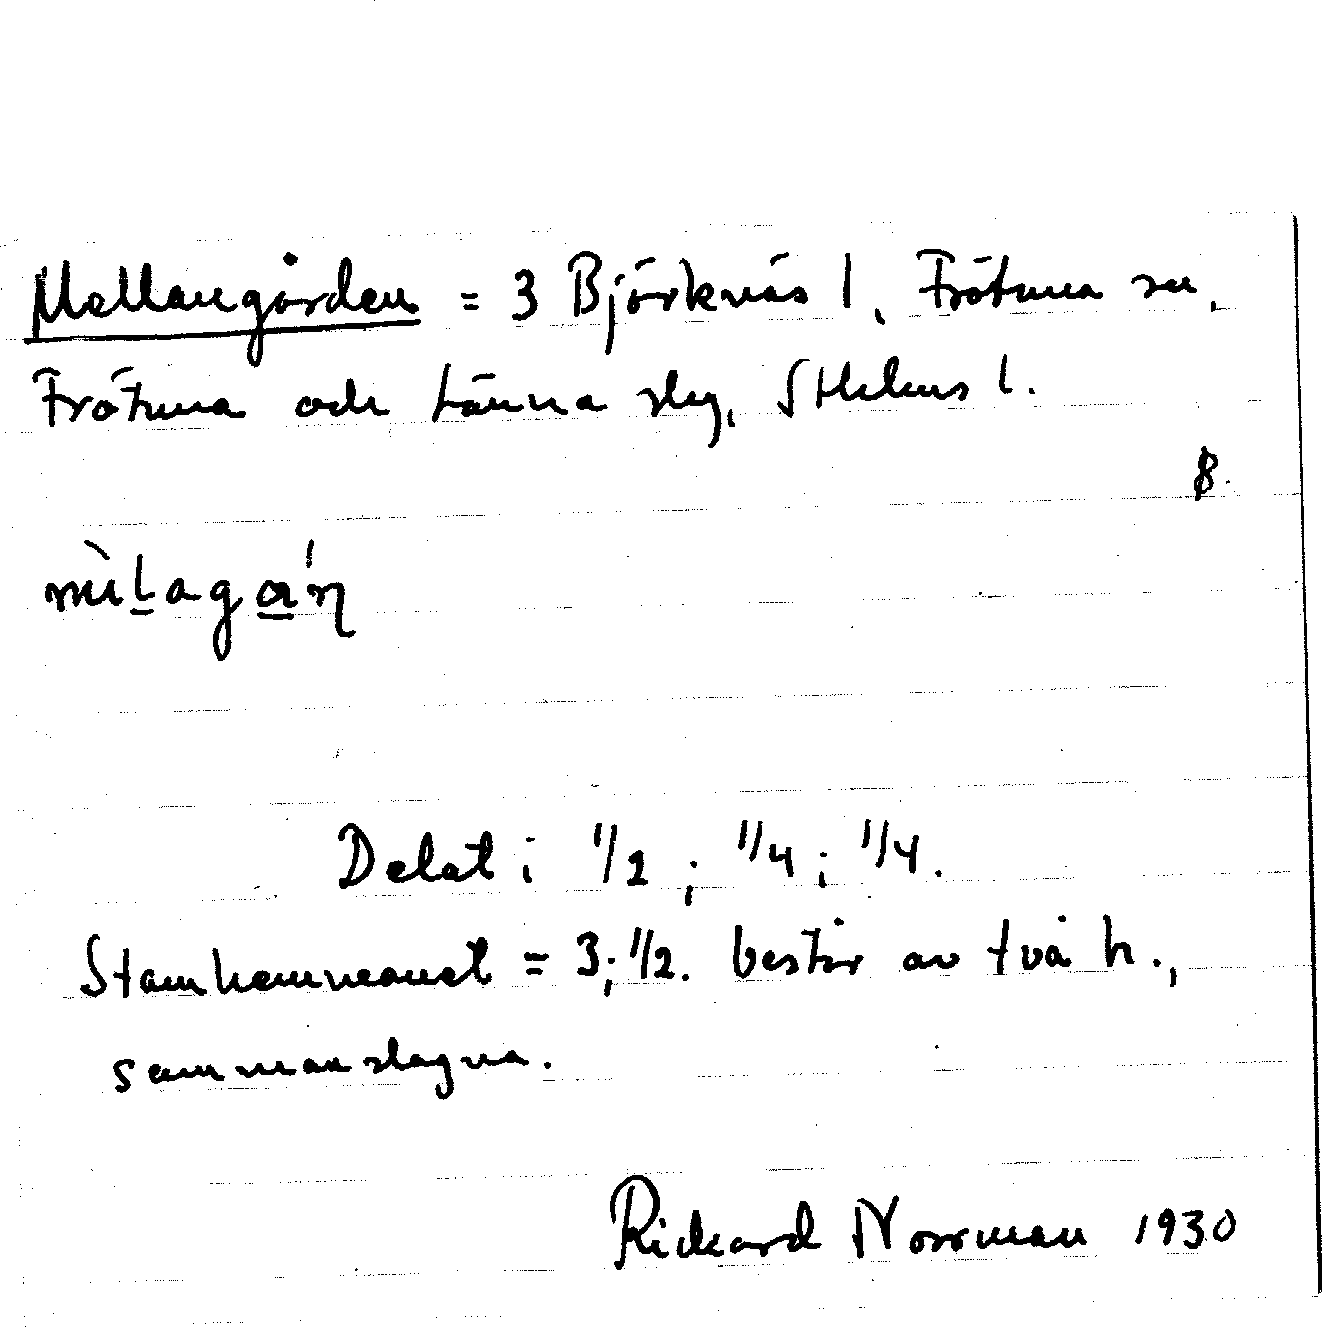 Mellangården = 3 Björknäs l, Frötuna sn,
Frötuna och Länna slg, Sthlms l.
ß.
Delat i 1/2 ; 1/4 ; 1/4.
Stamhemmanet = 3; 1/2. består av två h.,
sammanslagna.
Rickard Norrman 1930